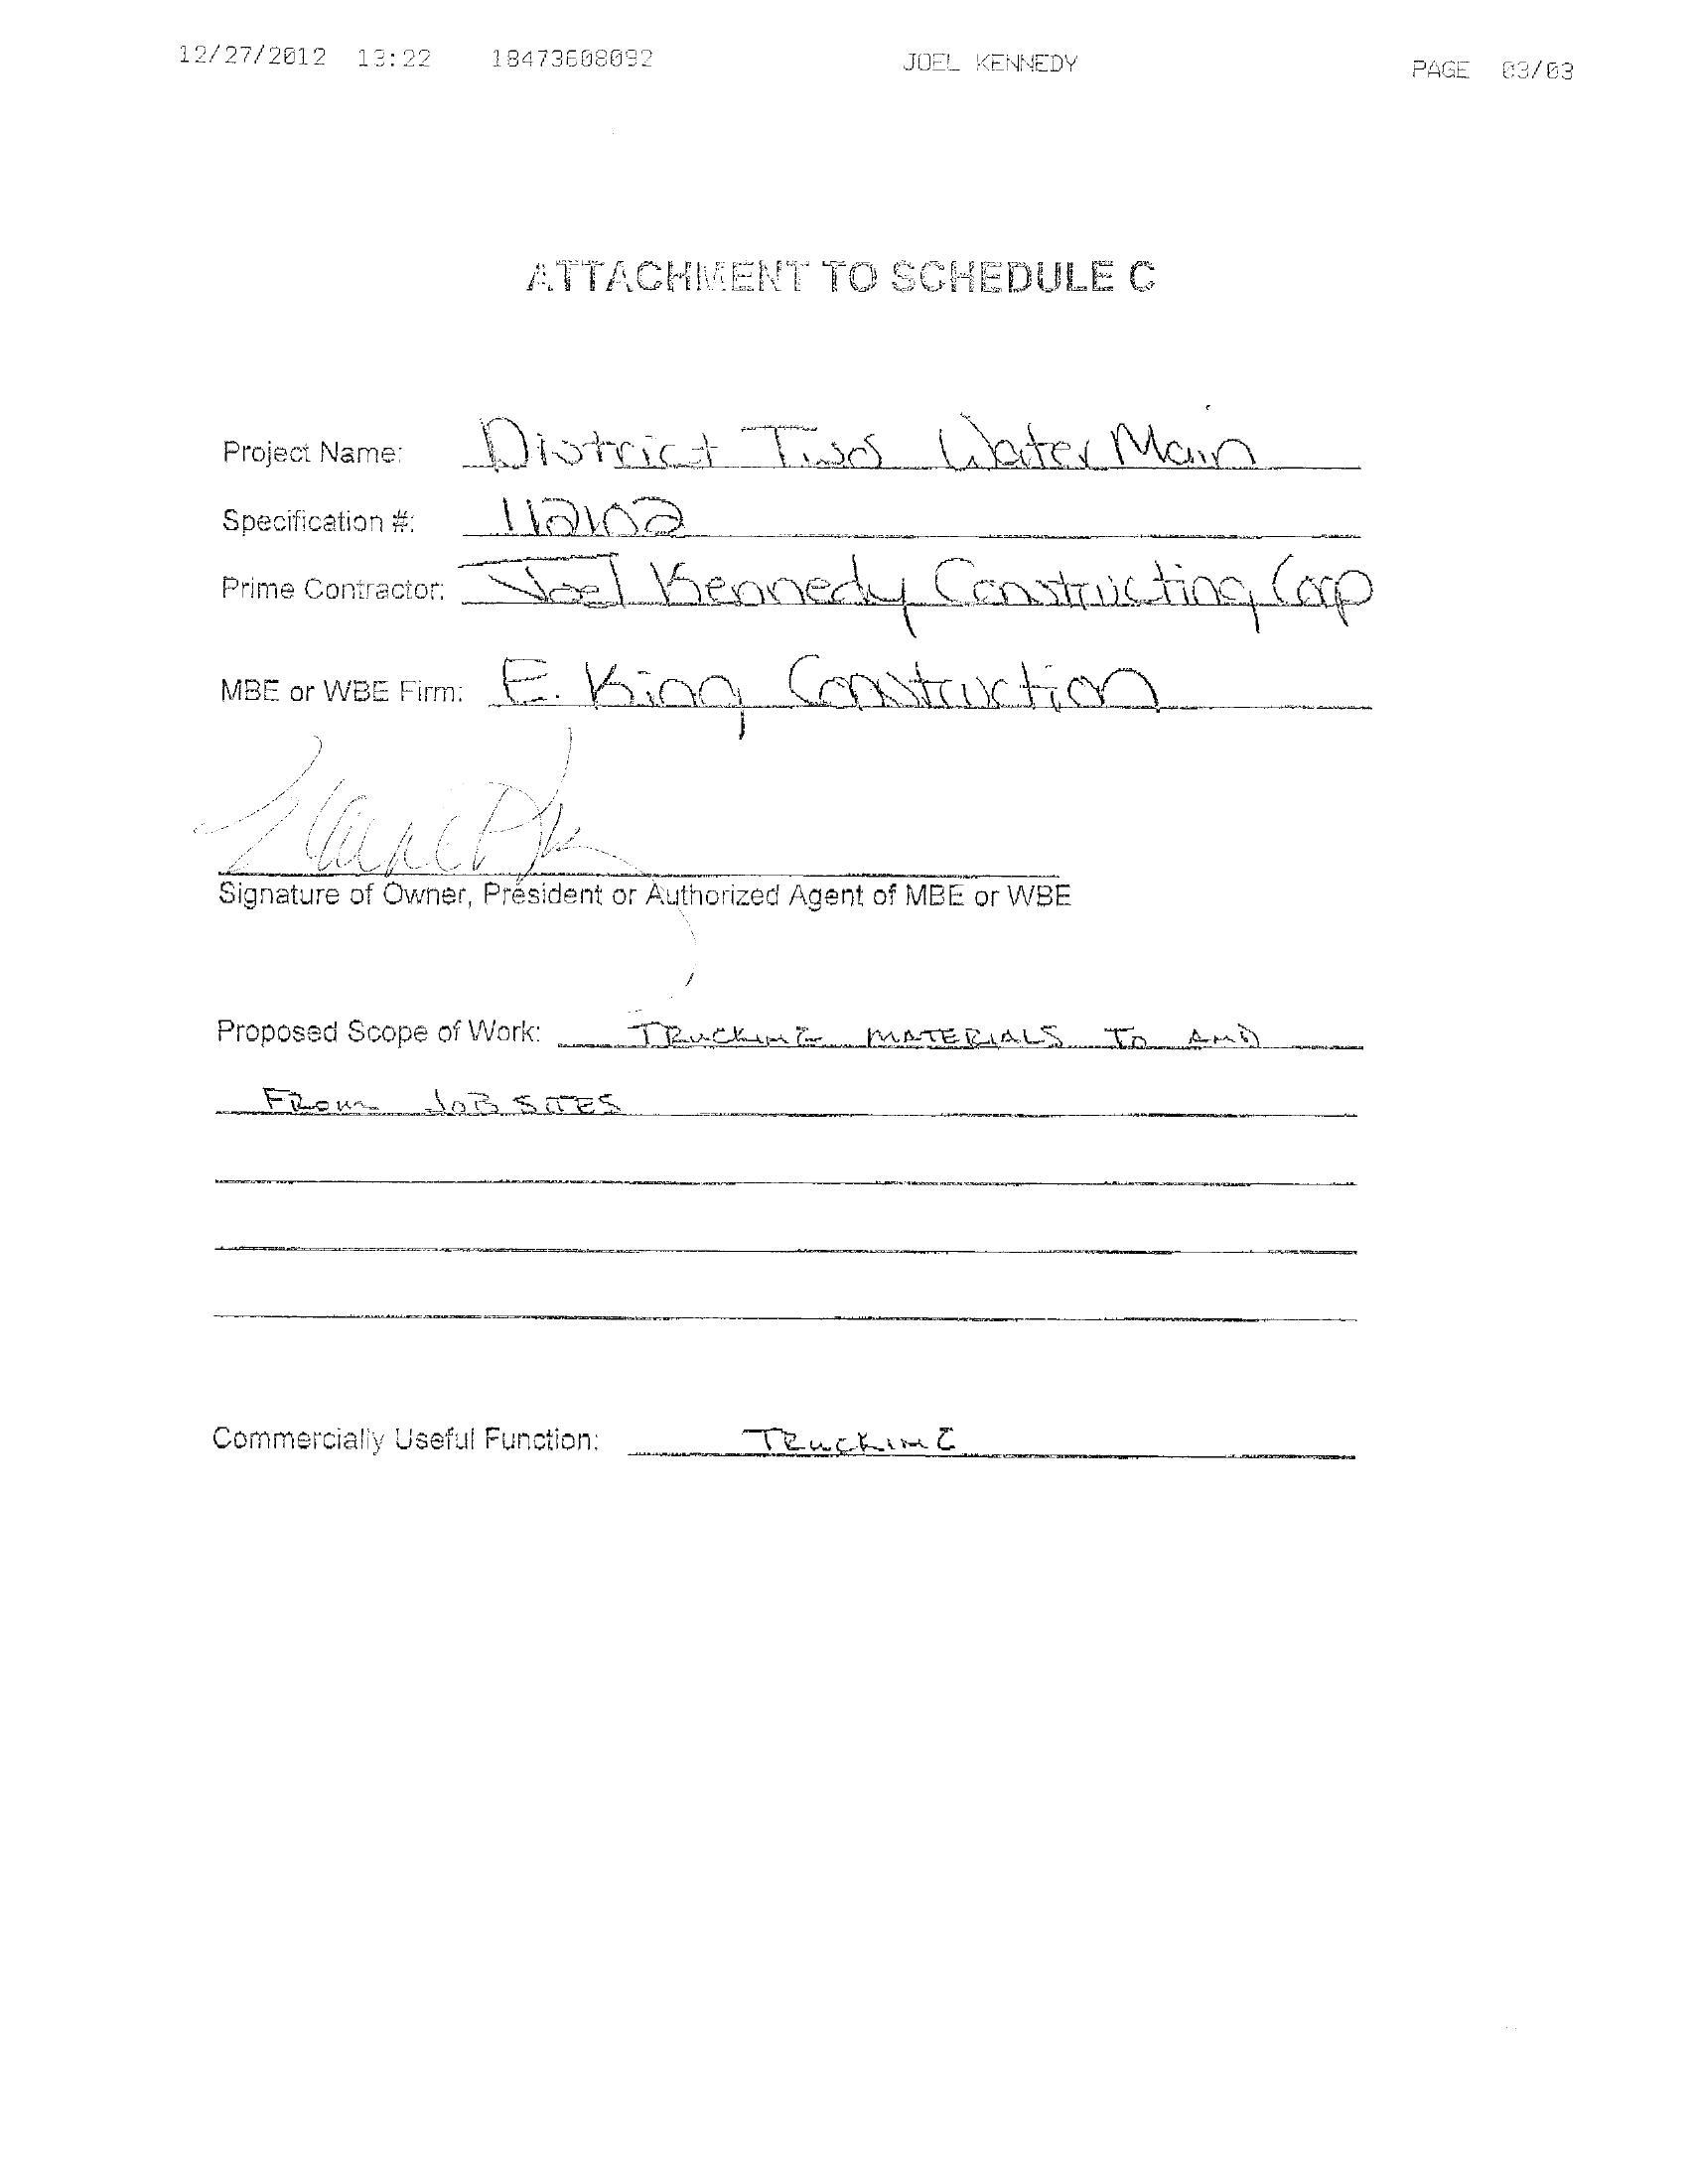 12/27/2012 13:22 18473608092 JOEL KENNEDY PAGE 03/03
ATTACHMENT TO SCHEDULE C
Project Name: District Two Water Main
Specification #: 112102
Prime Contractor: Joel Kennedy Constructing Corp
MBE or WBE Firm: E. King Construction
Signature of Owner, President or Authorized Agent of MBE or WBE
Proposed Scope of Work: TRUCKING MATERIALS TO AND
FROM JOB SITES
Commercially Useful Function: TRUCKING